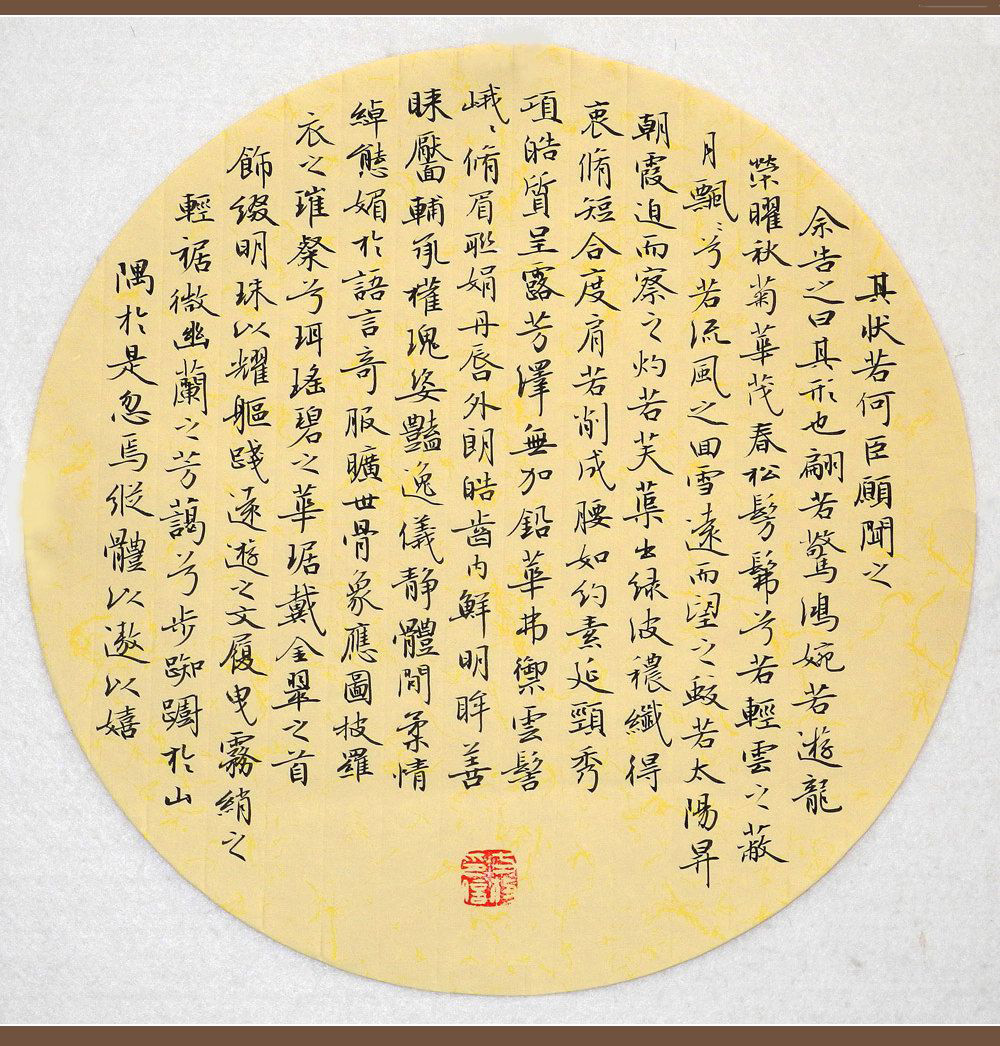 其狀若何臣願聞之
余告之曰其形也翩若驚鴻婉若遊龍
榮曜秋菊華茂春松髣髴兮若輕雲之蔽
月飄〻兮若流風之回雪遠而望之皎若太陽昇
朝霞迫而察之灼若芙蕖出綠波穠纖得
衷脩短合度肩若削成腰如約素延頸秀
項皓質呈露芳澤無加鉛華弗禦雲髻
峨〻脩眉聯娟丹唇外朗皓齒內鮮明眸善
睞靨輔承權瑰姿豔逸儀靜體閒柔情
綽態媚於語言奇服曠世骨象應圖披羅
衣之璀粲兮珥瑤碧之華琚戴金翠之首
飾綴明珠以耀軀踐遠遊之文履曳霧綃之
輕裾微幽蘭之芳藹兮步踟躕於山
隅於是忽焉縱體以遨以嬉